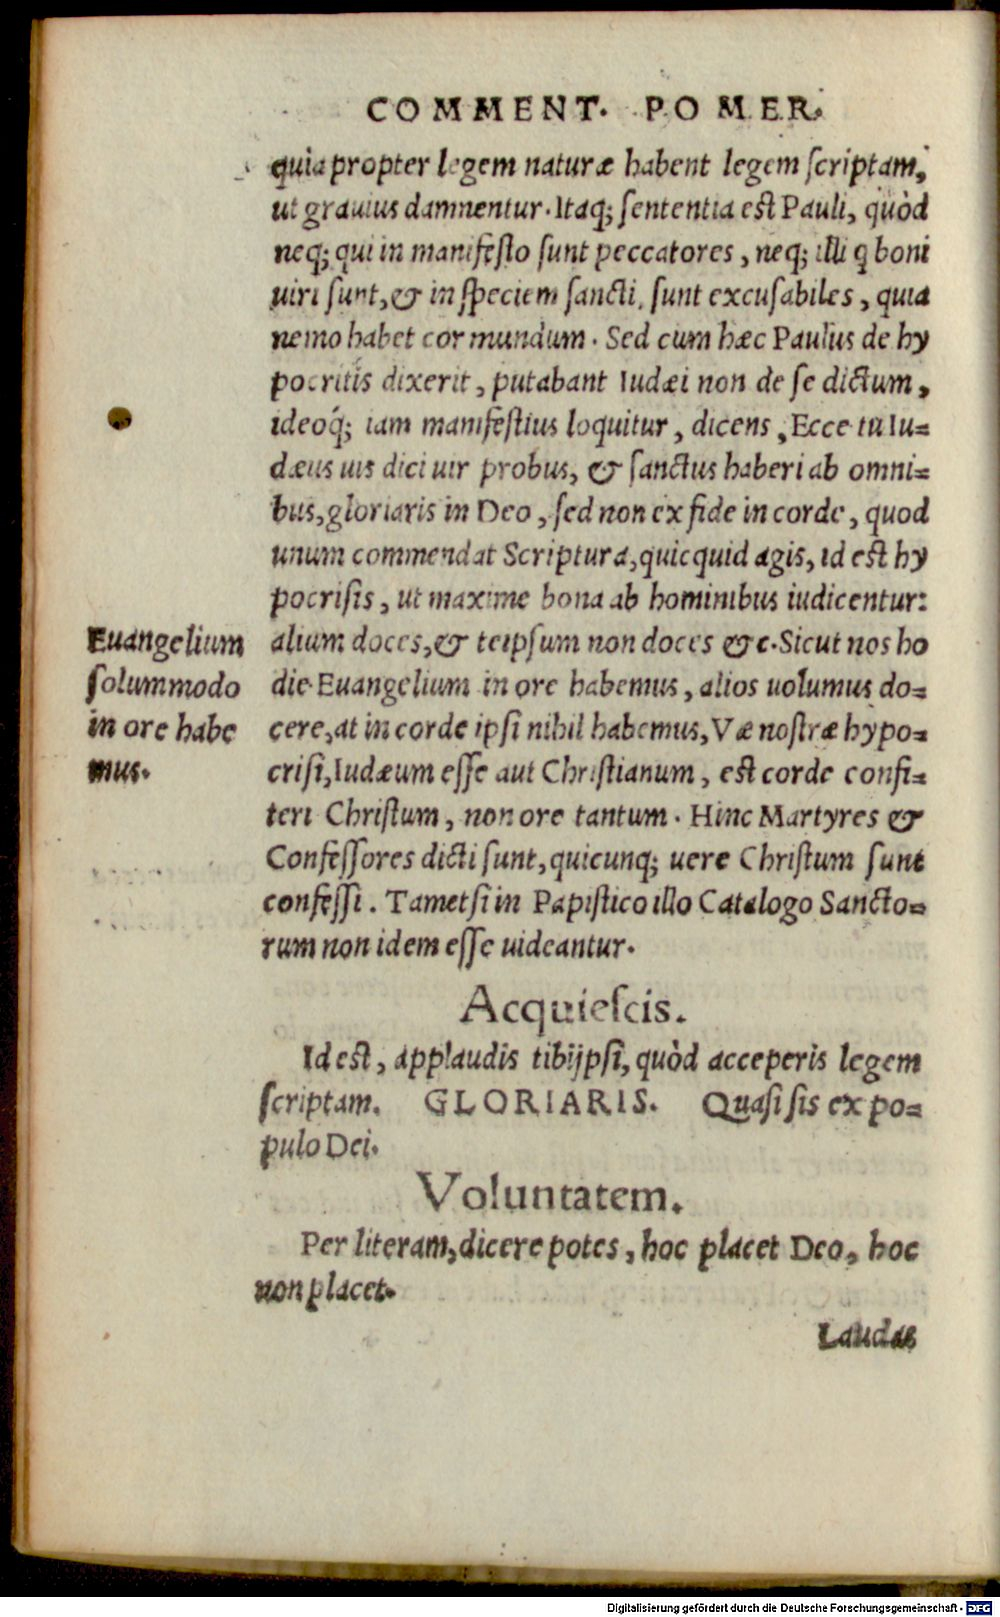 COMMENT. POMER.
quia propter legem naturæ habent legem scriptam,
ut grauius damnentur. Itaq; sententia est Pauli, quòd
neq; qui in manifesto sunt peccatores, neq; illi q boni
uiri sunt, & in speciem sancti, sunt excusabiles, quia
nemo habet cor mundum. Sed cum hæc Paulus de hy
pocritis dixerit, putabant Iudæi non de se dictum,
ideoq́; iam manifestius loquitur, dicens, Ecce tu Iu=
dæus uis dici uir probus, & sanctus haberi ab omni=
bus, gloriaris in Deo, sed non ex fide in corde, quod
unum commendat Scriptura, quicquid agis, id est hy
pocrisis, ut maxime bona ab hominibus iudicentur:
alium doces, & teipsum non doces &c. Sicut nos ho
die Euangelium in ore habemus, alios uolumus do=
cere, at in corde ipsi nihil habemus, Væ nostræ hypo=
crisi, Iudæum esse aut Christianum, est corde confi=
teri Christum, non ore tantum. Hinc Martyres &
Confessores dicti sunt, quicunq; uere Christum sunt
confessi. Tametsi in Papistico illo Catalogo Sancto=
rum non idem esse uideantur.
Euangelium
solummodo
in ore habe
mus.
Acquiescis.
Id est, applaudis tibijpsi, quòd acceperis legem
scriptam. GLORIARIS. Quasi sis ex po=
pulo Dei.
Voluntatem.
Per literam, dicere potes, hoc placet Deo, hoc
non placet.
Laudas
Digitalisierung gefördert durch die Deutsche Forschungsgemeinschaft - DFG